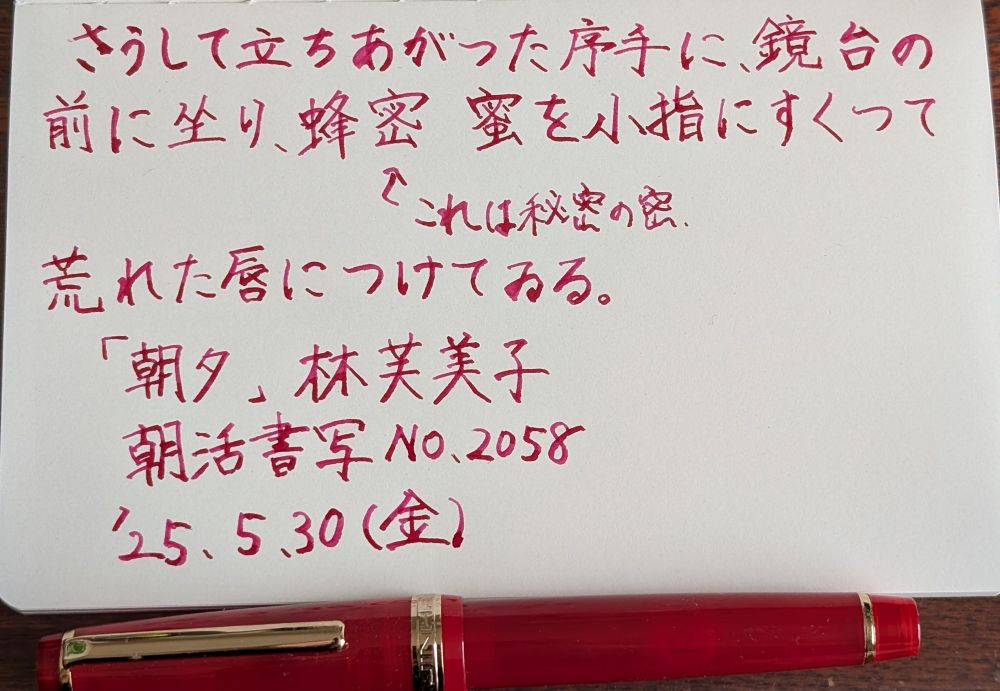 さうして立ちあがつた序手に、鏡台の
前に坐り、蜂密 蜜を小指にすくつて
↑これは秘密の密.
荒れた唇につけてゐる。
「朝夕」林芙美子
朝活書写NO.2058
'25.5.30(金)